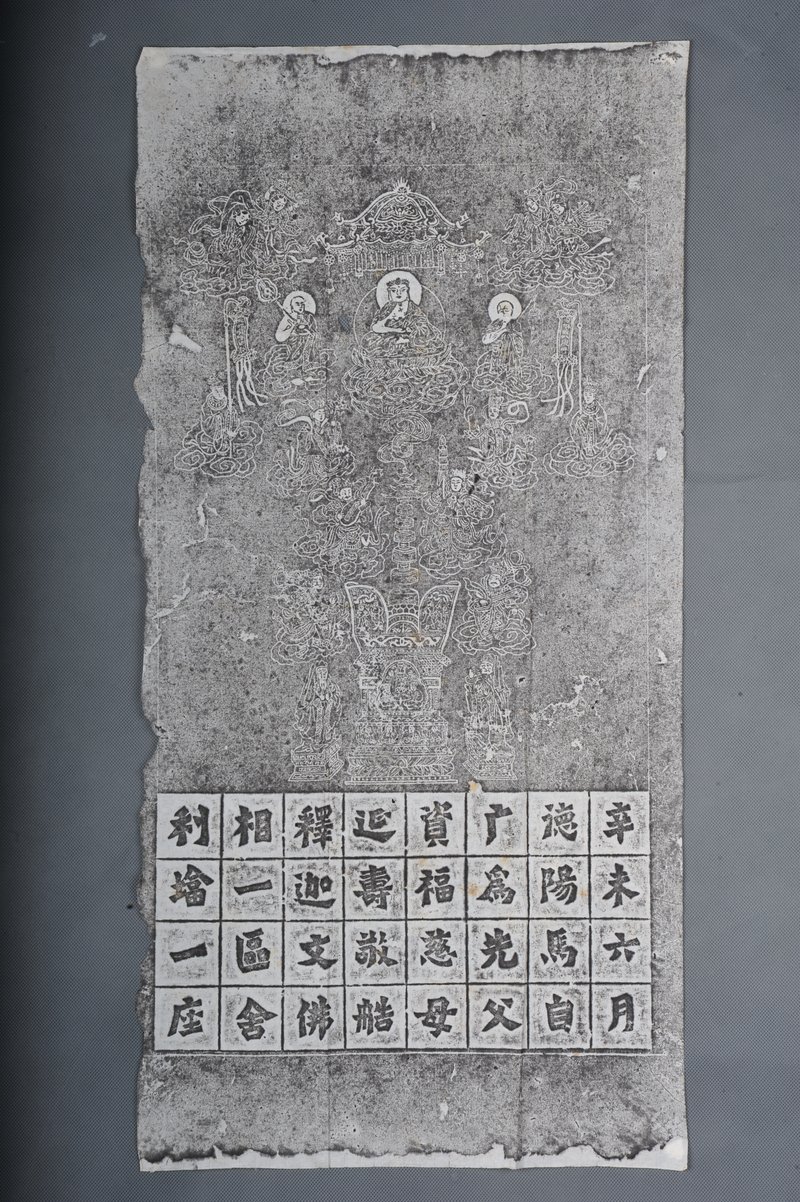 辛未六月
德陽馬自
广爲先父
資福慈母
延壽敬艁
釋迦文佛
相一區舍
利墖一座